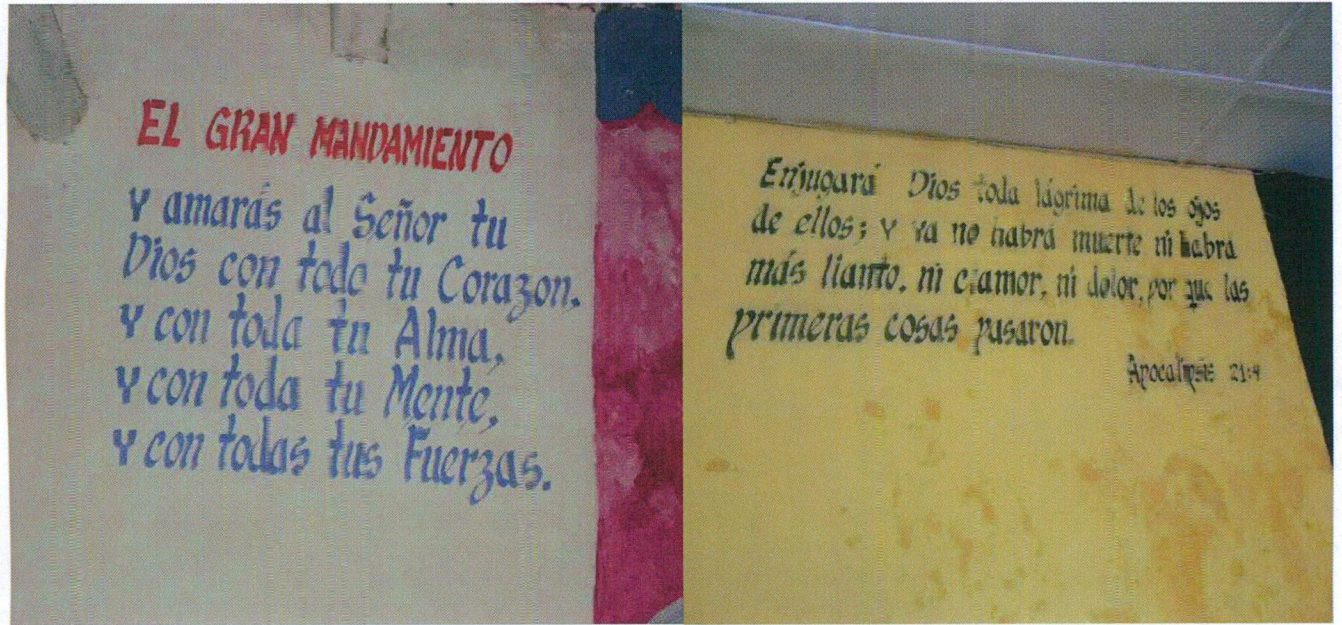 EL GRAN MANDAMIENTO
Y amarás al Señor tu
Dios con todo tu Corazon,
Y con toda tu Alma,
Y con toda tu Mente,
Y con todas tus Fuerzas.
Enjugará Dios toda lágrima de los ojos
de ellos; Y Ya no habrá muerte ni habrá
más llanto, ni clamor, ni dolor, por que las
primeras cosas pasaron.
Apocalipsis 21:4